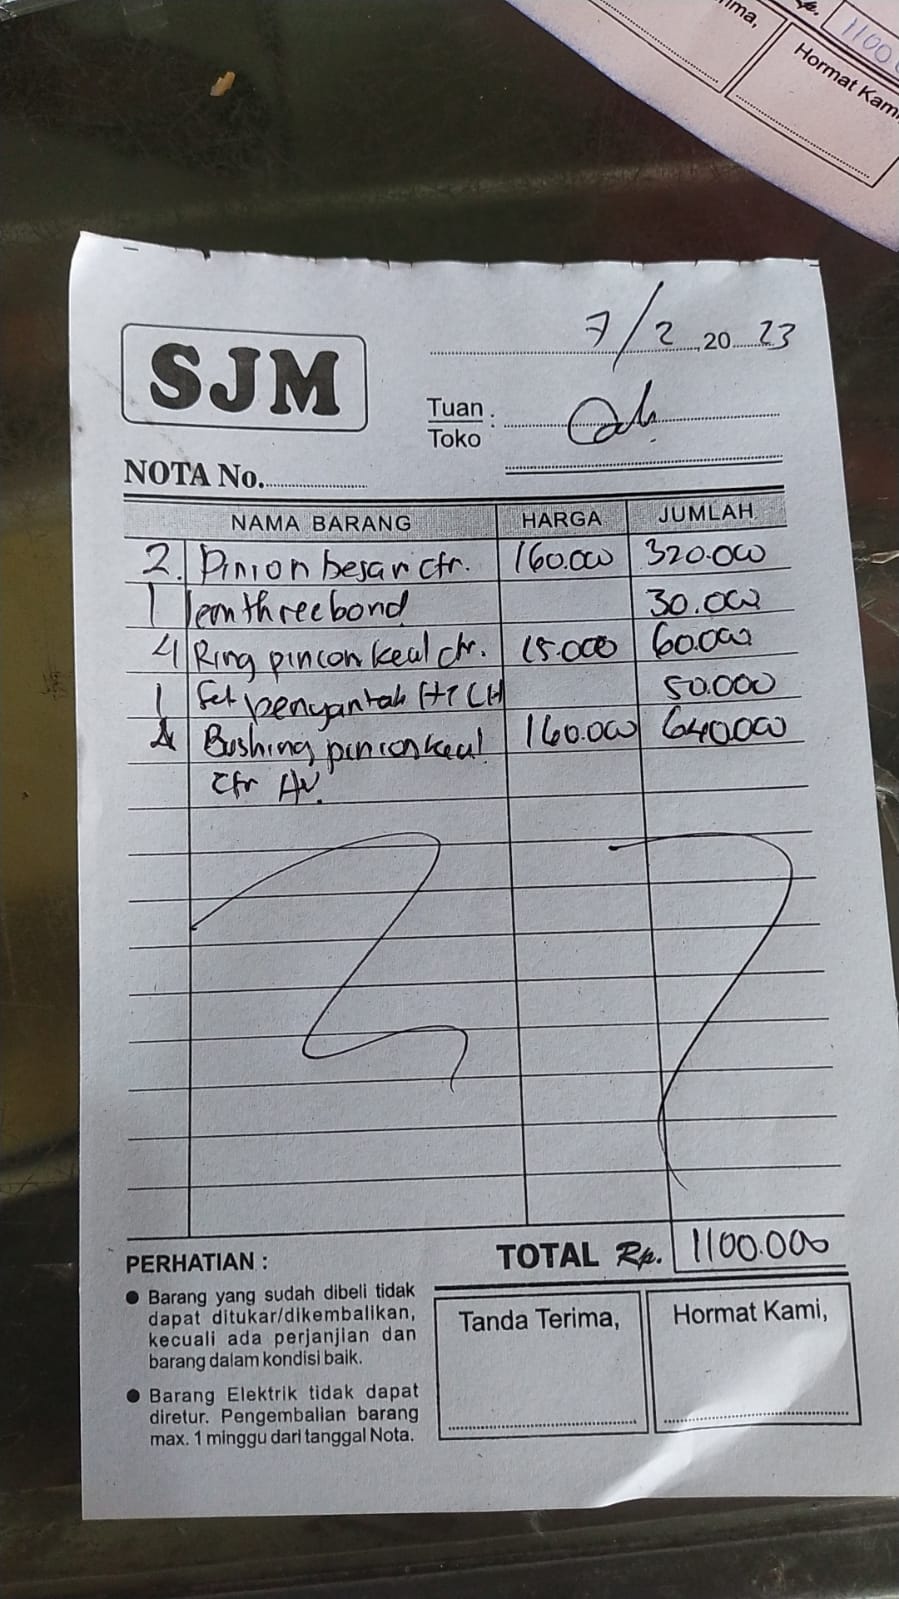 ima,
Rp.
1100
Hormat Kami
SJM
7/2, 20 23
Tuan :
Toko
NOTA No.
NAMA BARANG HARGA JUMLAH
2. Pinion besar ctr. 160.000 320.000
1 lem threebond 30.000
4 Ring pinion kecil ctr. 15.000 60.000
1 Set 50.000
4 Bushing pinion kecil 160.000 640000
ctr
PERHATIAN :
TOTAL Rp. 1100.000
● Barang yang sudah dibeli tidak
dapat ditukar/dikembalikan,
kecuali ada perjanjian dan
barang dalam kondisi baik.
● Barang Elektrik tidak dapat
diretur. Pengembalian barang
max. 1 minggu dari tanggal Nota.
Tanda Terima,
Hormat Kami,